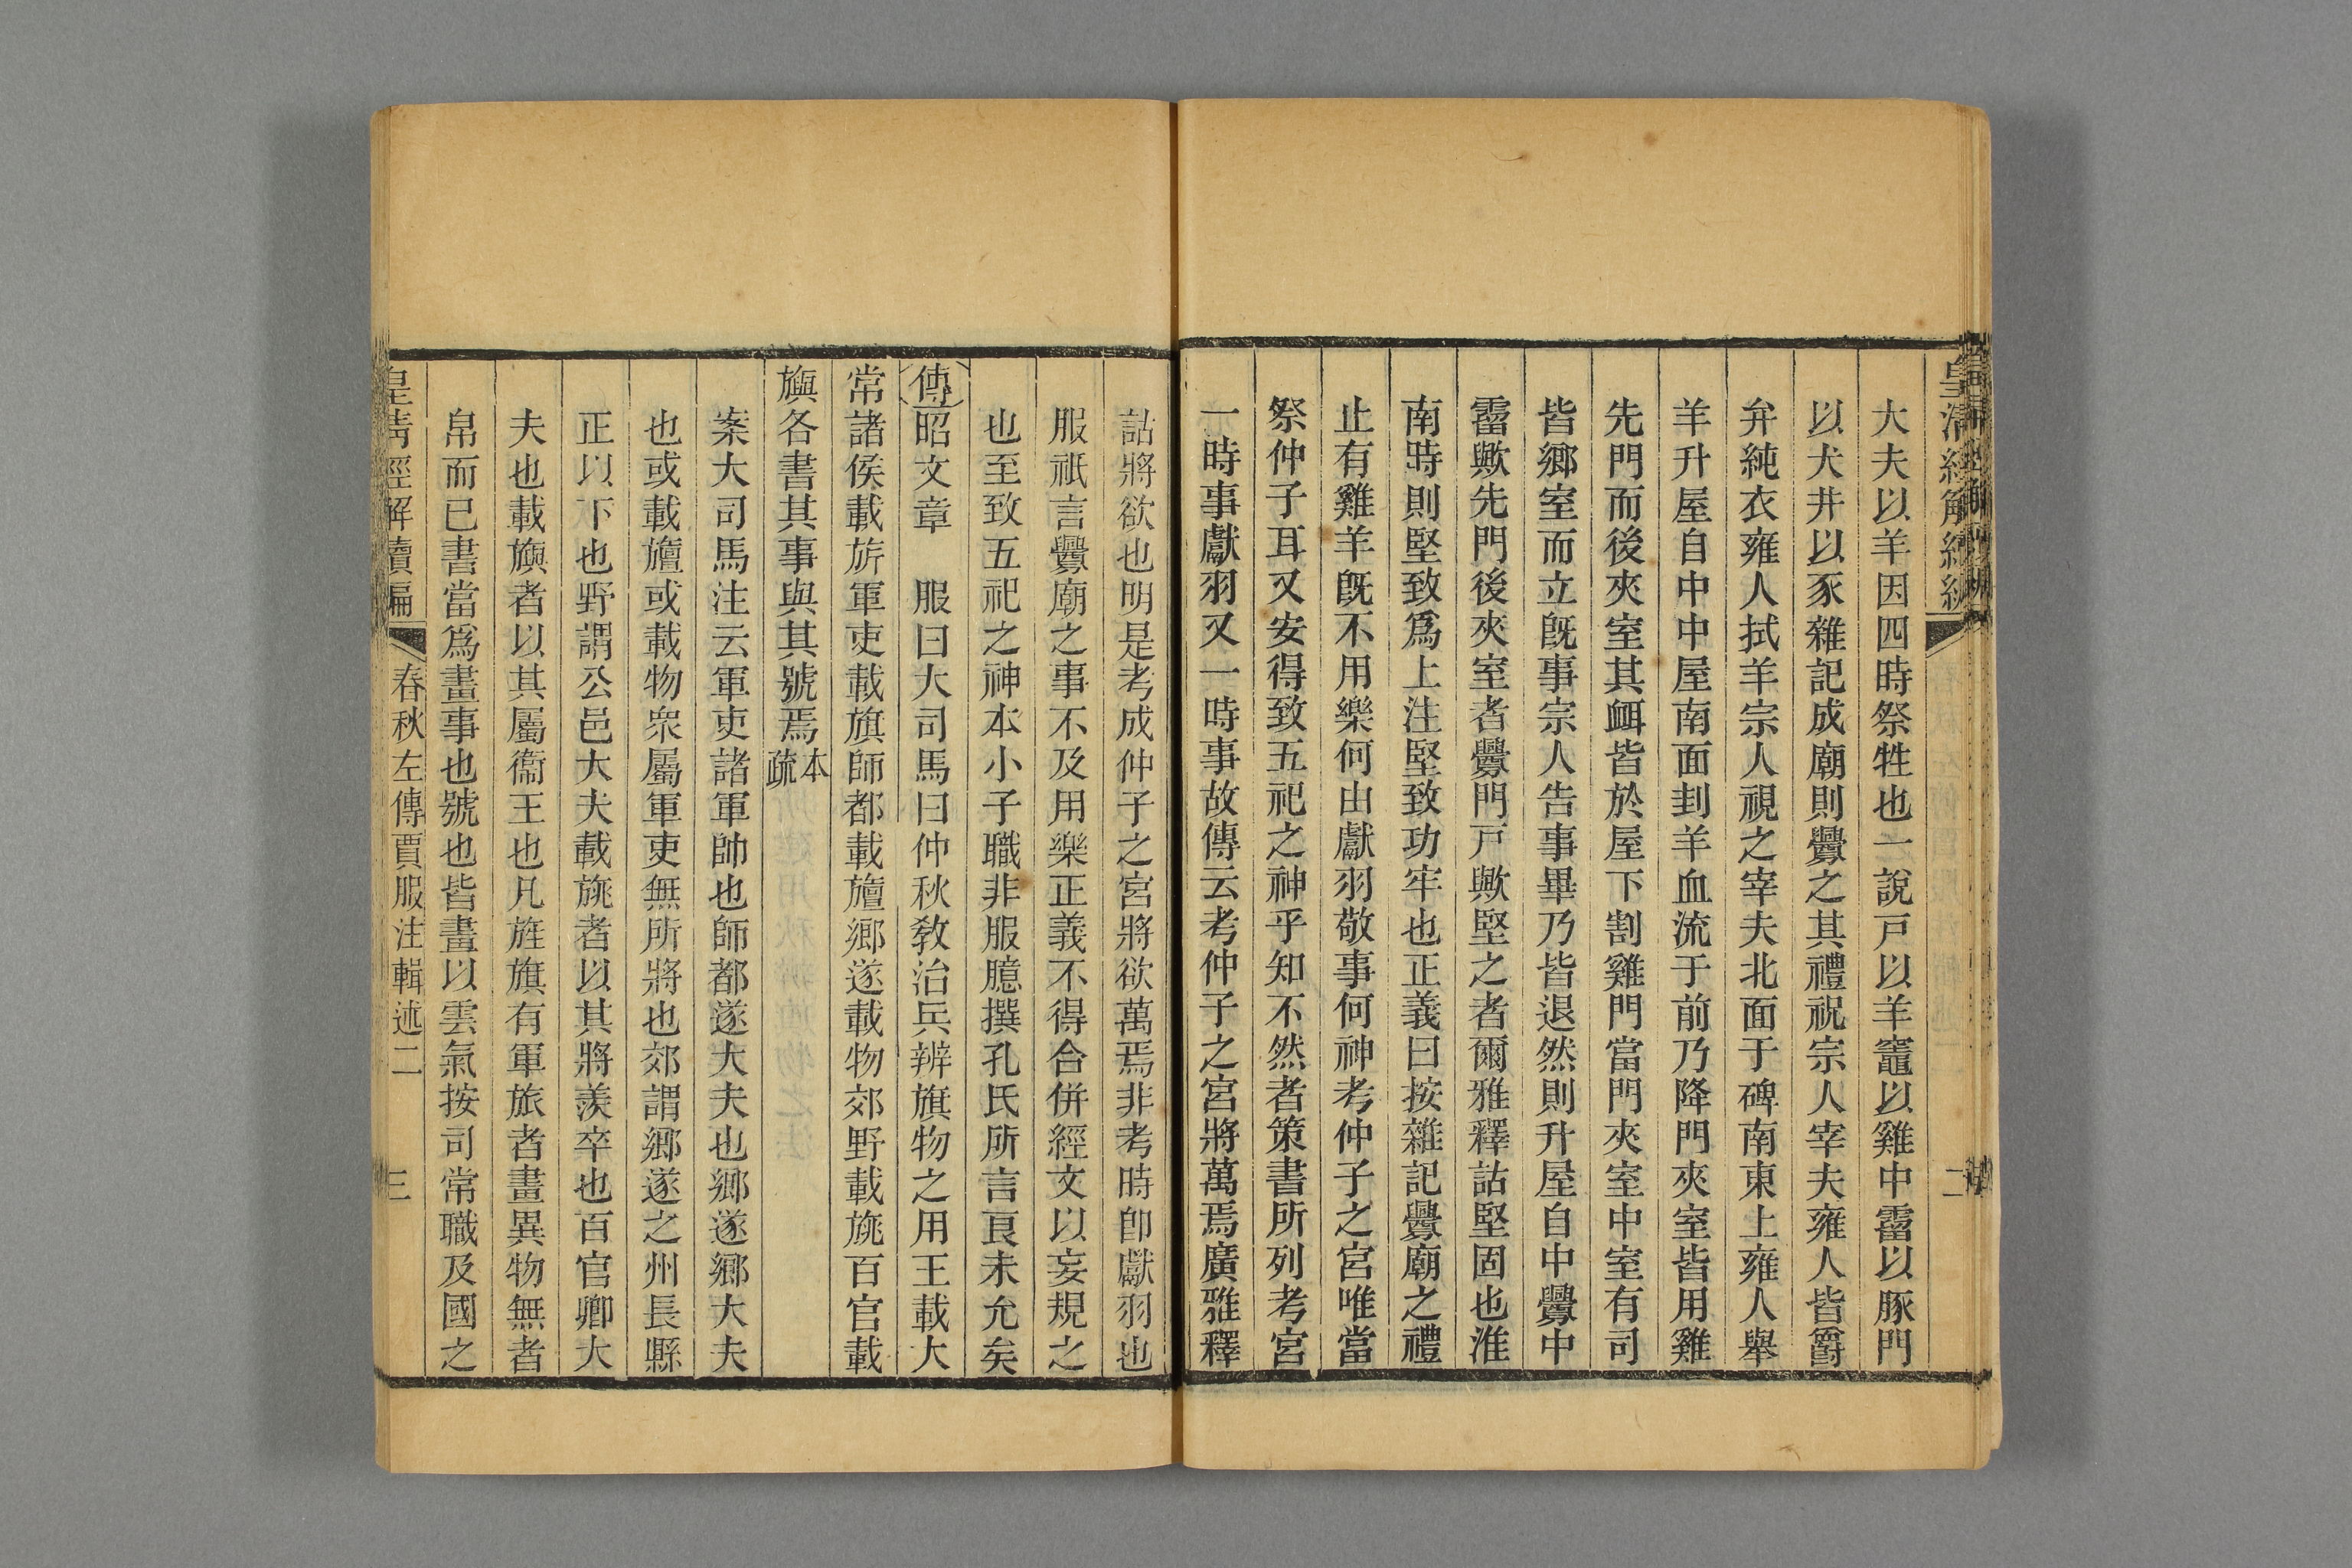 皇清經解續編 二
大夫以羊因四時祭牲也一說戸以羊竈以雞中霤以豚門
以犬井以豕雜記成廟則釁之其禮祝宗人宰夫雍人皆爵
弁純衣雍人拭羊宗人視之宰夫北面于碑南東上雍人舉
羊升屋自中中屋南面刲羊血流于前乃降門夾室皆用雞
先門而後夾室其衈皆於屋下割雞門當門夾室中室有司
皆鄉室而立旣事宗人告事畢乃皆退然則升屋自中釁中
霤歟先門後夾室者釁門戸歟堅之者爾雅釋詁堅固也淮
南時則堅致爲上注堅致功牢也正義曰按雜記釁廟之禮
止有雞羊旣不用樂何由獻羽敬事何神考仲子之宮唯當
祭仲子耳又安得致五祀之神乎知不然者策書所列考宮
一時事獻羽又一時事故傳云考仲子之宮將萬焉廣雅釋
詁將欲也明是考成仲子之宮將欲萬焉非考時卽獻羽也
服祇言釁廟之事不及用樂正義不得合併經文以妄規之
也至致五祀之神本小子職非服臆撰孔氏所言良未允矣
傳昭文章 服曰大司馬曰仲秋教治兵辨旗物之用王載大
常諸侯載旂軍吏載旗師都載旜鄉遂載物郊野載旐百官載
旟各書其事與其號焉本疏
案大司馬注云軍吏諸軍帥也師都遂大夫也鄉遂鄉大夫
也或載旜或載物衆屬軍吏無所將也郊謂鄉遂之州長縣
正以下也野謂公邑大夫載旐者以其將羨卒也百官卿大
夫也載旟者以其屬衞王也凡旌旗有軍旅者畫異物無者
帛而已書當爲畫事也號也皆畫以雲氣按司常職及國之
皇清經解續編 春秋左傳賈服注輯述二 三